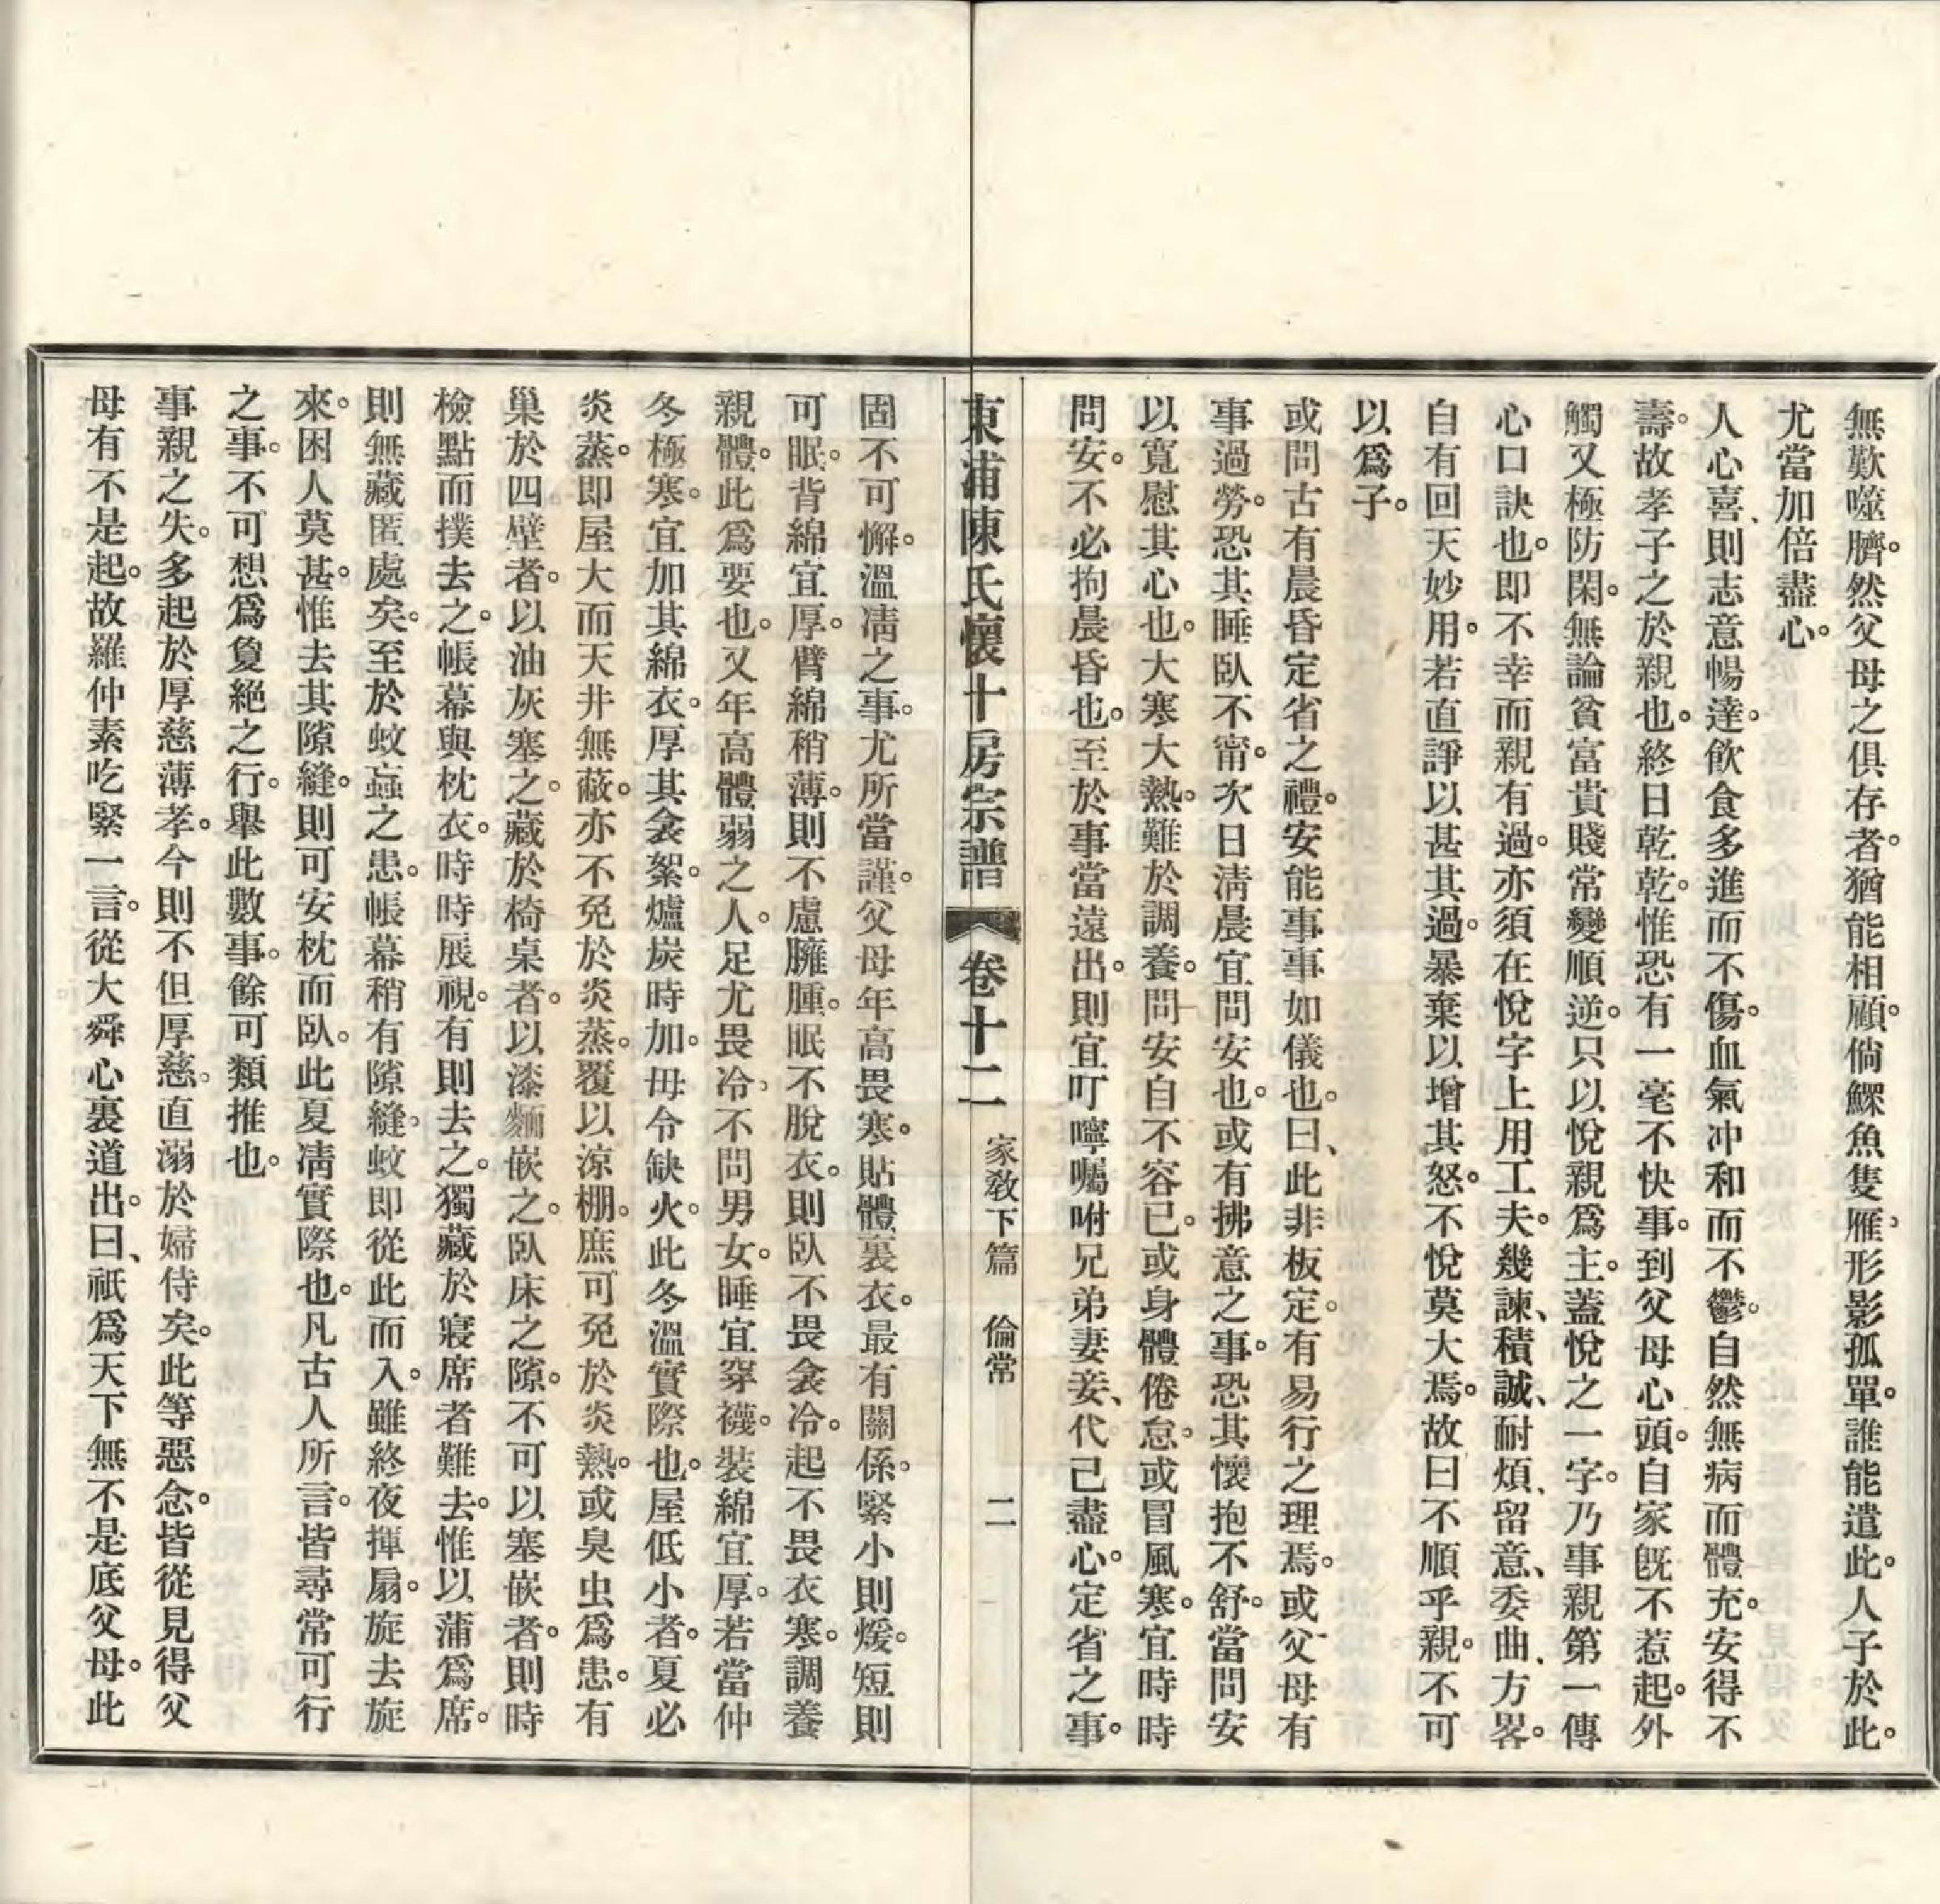 無歎噬臍。然父母之俱存者。猶能相顧。倘鰥魚隻雁。形影孤單。誰能遣此。人子於此。
尤當加倍盡心。
人心喜、則志意暢達。飲食多進而不傷。血氣冲和而不鬱。自然無病而體充。安得不
壽。故孝子之於親也。終日乾乾。惟恐有一毫不快事。到父母心頭。自家旣不惹起。外
觸又極防閑。無論貧富貴賤常變順逆。只以悅親爲主。蓋悅之一字。乃事親第一傳
心口訣也。即不幸而親有過。亦須在悅字上用工夫。幾諫、積誠、耐煩、留意、委曲、方畧。
自有回天妙用。若直諍以甚其過。暴棄以增其怒。不悅莫大焉。故曰不順乎親。不可
以爲子。
或問古有晨昏定省之禮。安能事事如儀也。曰、此非板定。有易行之理焉。或父母有
事過勞。恐其睡臥不甯。次日淸晨宜問安也。或有拂意之事。恐其懷抱不舒。當問安
以寬慰其心也。大寒大熱。難於調養。問安自不容已。或身體倦怠。或冒風寒。宜時時
問安。不必拘晨昏也。至於事當遠出。則宜叮嚀囑咐兄弟妻妾、代己盡心。定省之事。
東浦陳氏懷十房宗譜 卷十二 家敎下篇 倫常 二
固不可懈。溫凊之事。尤所當謹。父母年高畏寒。貼體裏衣。最有關係。緊小則煖。短則
可眠。背綿宜厚。臂綿稍薄。則不慮臃腫。眠不脫衣。則臥不畏衾冷。起不畏衣寒。調養
親體。此爲要也。又年高體弱之人。足尤畏冷。不問男女。睡宜穿襪。裝綿宜厚。若當仲
冬極寒。宜加其綿衣。厚其衾絮。爐炭時加。毋令缺火。此冬溫實際也。屋低小者。夏必
炎蒸。即屋大而天井無蔽。亦不免於炎蒸。覆以涼棚。庶可免於炎熱。或臭虫爲患。有
巢於四壁者。以油灰塞之。藏於椅桌者。以漆麵嵌之。臥床之隙。不可以塞嵌者。則時
檢點而撲去之。帳幕與枕衣。時時展視。有則去之。獨藏於寢席者難去。惟以蒲爲席。
則無藏匿處矣。至於蚊蝱之患。帳幕稍有隙縫。蚊即從此而入。雖終夜揮扇。旋去旋
來。困人莫甚。惟去其隙縫。則可安枕而臥。此夏凊實際也。凡古人所言。皆尋常可行
之事。不可想爲敻絕之行。舉此數事。餘可類推也。
事親之失。多起於厚慈薄孝。今則不但厚慈。直溺於婦侍矣。此等惡念。皆從見得父
母有不是起。故羅仲素吃緊一言。從大舜心裏道出。曰、祇爲天下無不是底父母。此